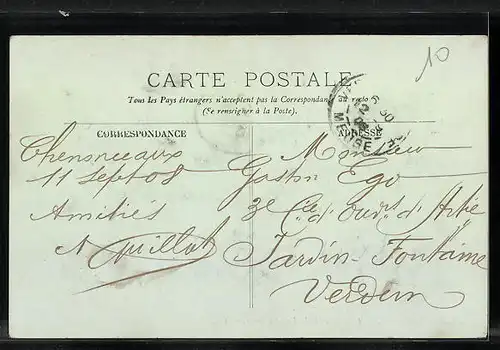 10
CARTE POSTALE
Tous les Pays étrangers n'acceptent pas la Correspondance au recto
(Se renseigner à la Poste).
CORRESPONDANCE
ADRESSE
Chenonceaux
11 Sept 08
Amitiés
Guillot
Monsieur
Gaston Ego
3e Cie d'Ouvrs d'Artie
Jardin-Fontaine
Verdun
MEUSE